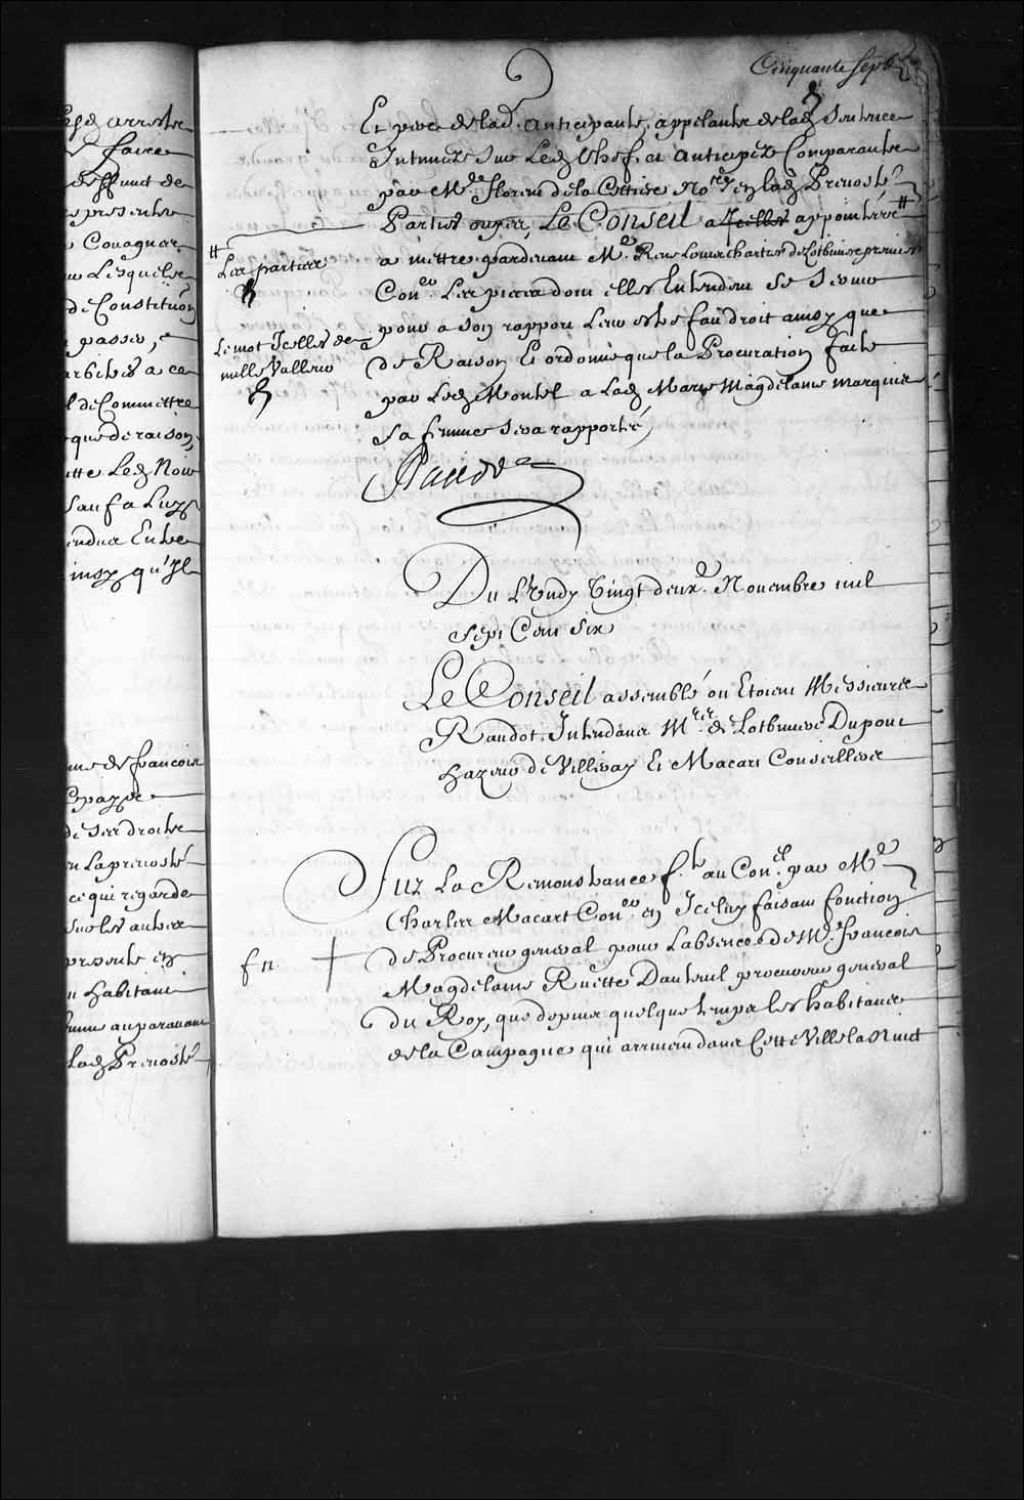 Cinquante sept
Et pere de lad. anticipante, appelante de lad. Sentence
Intimée sur Led. Chef. et anticipée Comparante
par Me. florent de la Cettiere Nore. en lad. Prevosté
Parties ouyes, Le Conseil a Icelles appointées #
a mettre pardevant Me. Rene Louis chartier de Lotbiniere premier
Coner. Les pieces dont elles Entendent Se Servir
pour a Son rapport Leur estre fait droit ainsy que
de Raison Et ordonne que la Procuration faite
par Led. Montel a Lad. Marie Magdelaine marquis
Sa femme Sera rapportée
Raudot
# Les parties
Le mot Icelles de
nulle Valleur
Du Lundy Vingt deuxe. Novembre mil
Sept Cent Six
Le Conseil assemblé ou Etoient Messieurs
Raudot Intendant Mrs. de Lotbiniere Dupont
hazeur de Villeray Et Macart Conseillers
Sur La Remonstrance f.te au Conel. par Me.
Charles Macart Coner. en Iceluy faisant fonction
de Procureur general pour Labsence de Me. francois
Magdelaine Ruette Dauteuil procureur general
du Roy, que depuis quelque temps les habitans
de la Campagne qui arrivent dans Cette Ville la Nuit
fn +
led. arreste
faire
deffunt de
presente
Couagnac
Lesquels
de Constitution
passer,
a ce
de Commettre
que de raison,
Led. Noir
Sauf a Luy
Entre
ainsy qu'Il
de francois
de Ses droits
En La prevosté
ce qui regarde
Sur les autres
presente en
habitant
femme auparavant
Lad. Prevosté